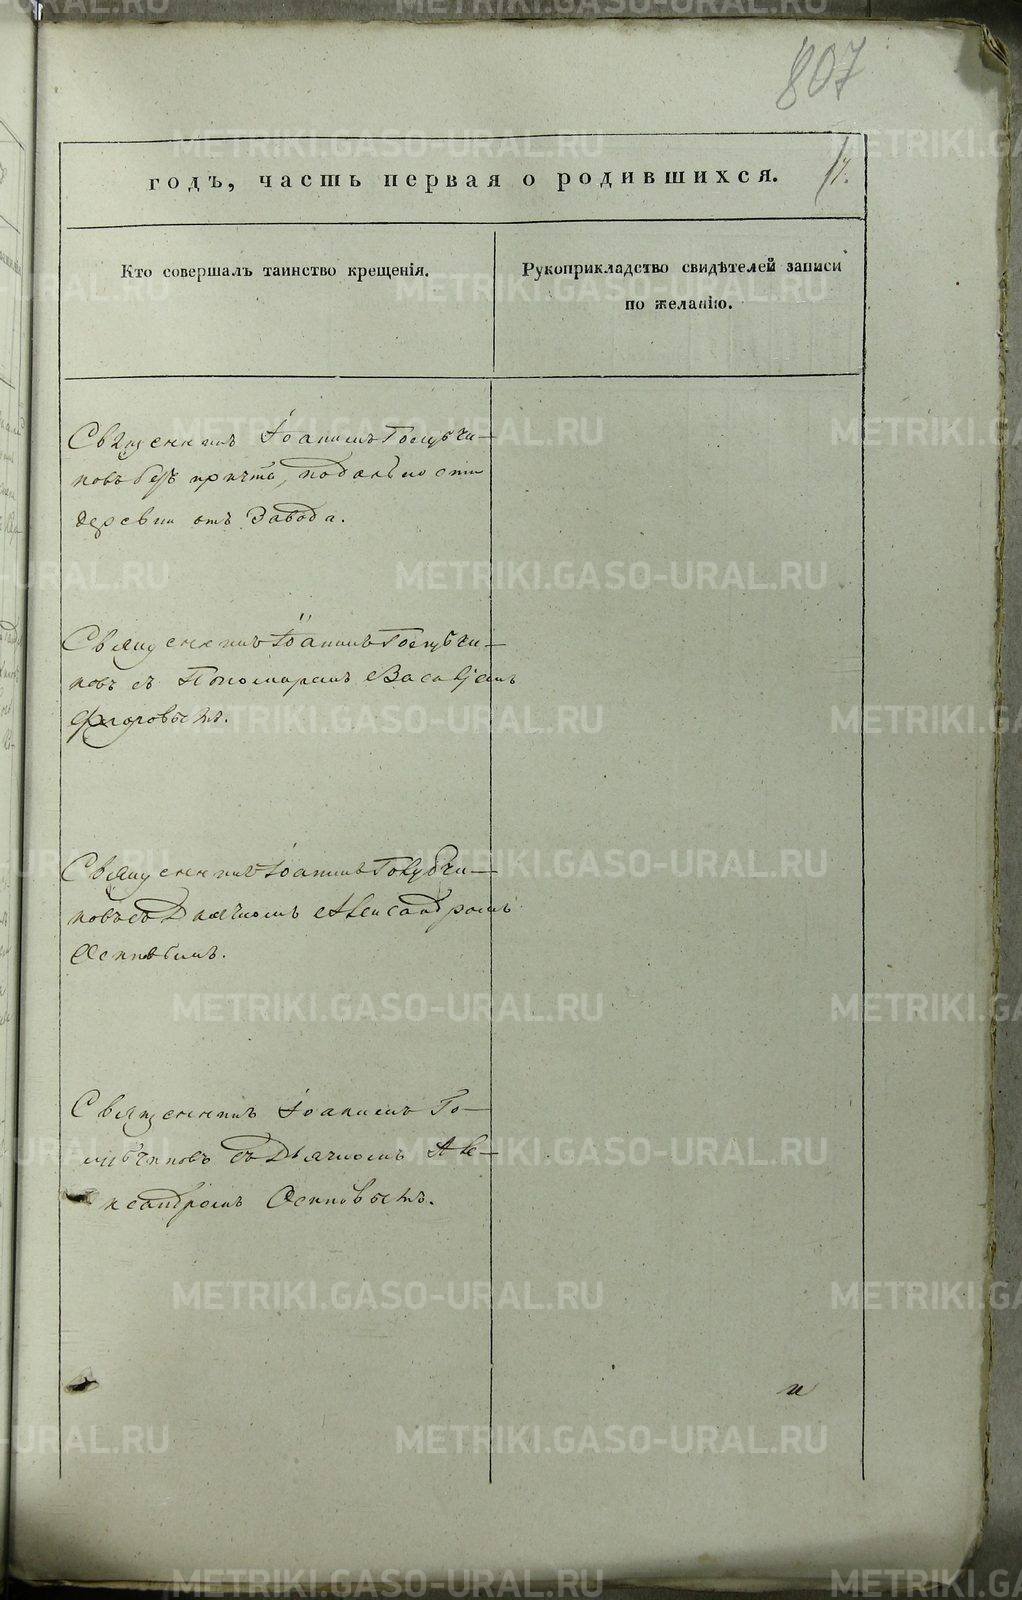 807
годъ, часть первая о родившихся.
17.
Кто совершалъ таинство крещенія.
Рукоприкладство свидѣтелей записи
по желанію.
Священникъ Іоаннъ Голубчи-
ковъ безъ причта, по дальности
деревни отъ Завода.
Священникъ Іоаннъ Голубчи-
ковъ съ Пономаремъ Васильемъ
Флоровымъ.
Священникъ Іоаннъ Голубчи-
ковъ съ Дьячкомъ Александромъ
Осиповымъ.
Священникъ Іоаннъ Го-
лубчиковъ съ Дьячкомъ Але-
ксандромъ Осиповымъ.
и
METRIKI.GASO-URAL.RU